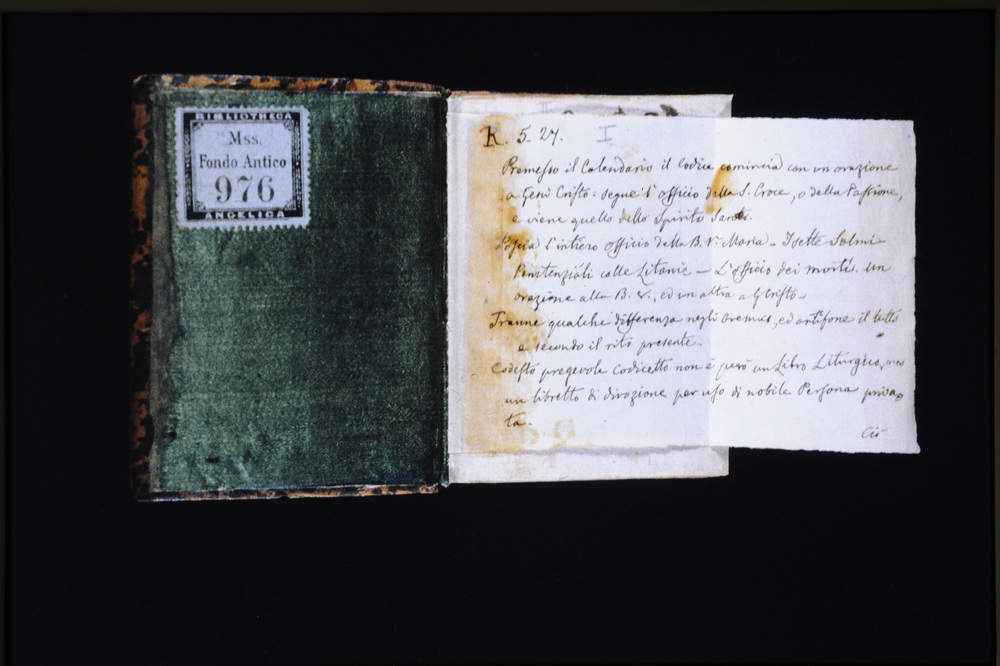 BIBLIOTHECA
Mss.
Fondo Antico
976
ANGELICA
II
R. 5. 27. I
Premesso il Calendario il Codice comincia con un orazione
a Gesù Cristo: segue l'officio della S. Croce, o della Passione,
e viene quello dello Spirito Santo.
Poscia l'intiero officio della B. V. Maria - I sette Salmi
Penitenziali colle Litanie — L'officio dei morti. un
orazione alla B. V., ed un altra a G Cristo.
Tranne qualche differenza negli Oremus, ed antifone il tutto
e secondo il rito presente.
Codesto pregevole codicetto non è però un Libro Liturgico, ma
un libretto di divozione per uso di nobile Persona priva=
ta.
Ciò